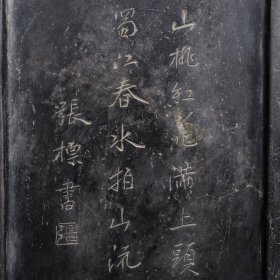 山桃红花满上頭
蜀江春水拍山流
張標書